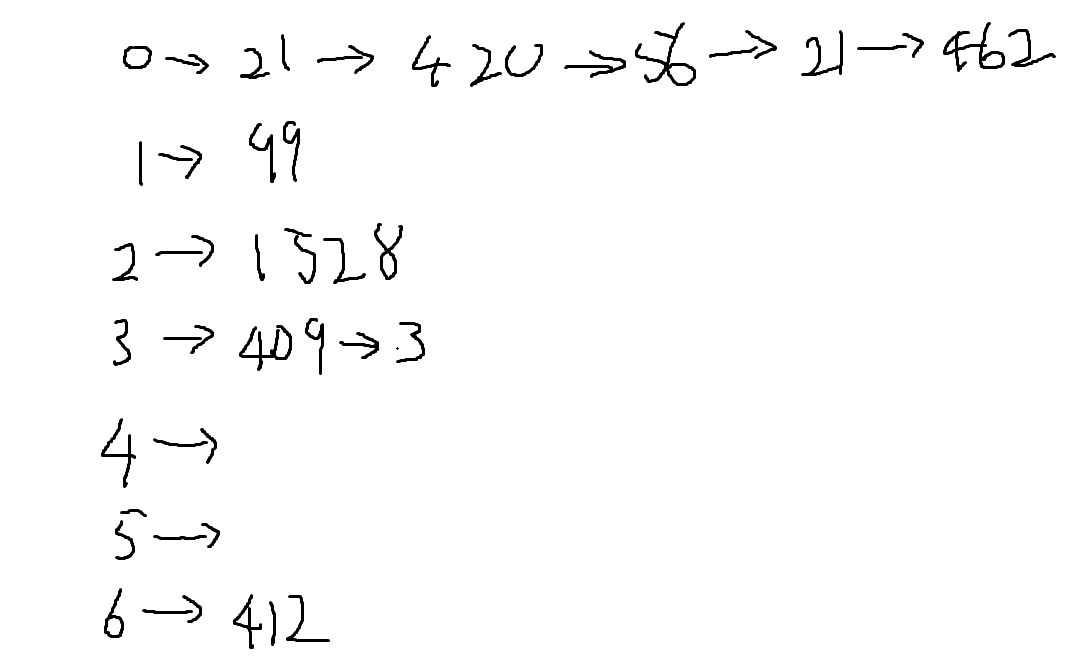 0 → 21 → 420 → 56 → 21 → 462
1 → 99
2 → 1528
3 → 409 → 3
4 →
5 →
6 → 412